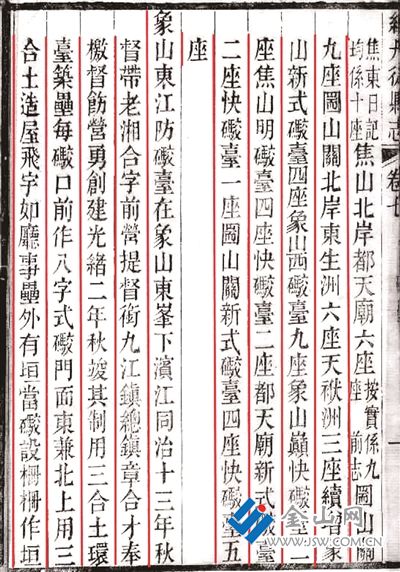 續丹徒縣志 卷七
焦東日記均係十座 焦山北岸都天廟六座 按實係九座 前志 圌山關
九座圌山關北岸東生洲六座天袱洲三座續增象
山新式礮臺四座象山西礮臺九座象山巔快礮臺一
座焦山明礮臺四座快礮臺二座都天廟新式礮臺
二座快礮臺一座圌山關新式礮臺四座快礮臺五
座
象山東江防礮臺在象山東峯下濱江同治十三年秋
督帶老湘合字前營提督銜九江鎮總鎮章合才奉
檄督飭營勇創建光緒二年秋竣其制用三合土環
臺築壘每礮口前作八字式礮門面東兼北上用三
合土造屋飛宇如廳事壘外有垣當礮設柵柵作垣
金山网
WWW.JSW.COM.CN